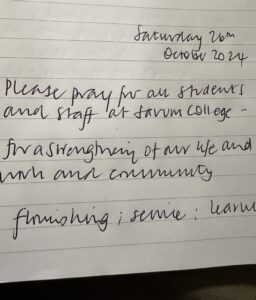 Saturday 26th
October 2024
Please pray for all students
and staff at Sarum College -
for a strengthening of our life and
work and community
flourishing ; service ; learni